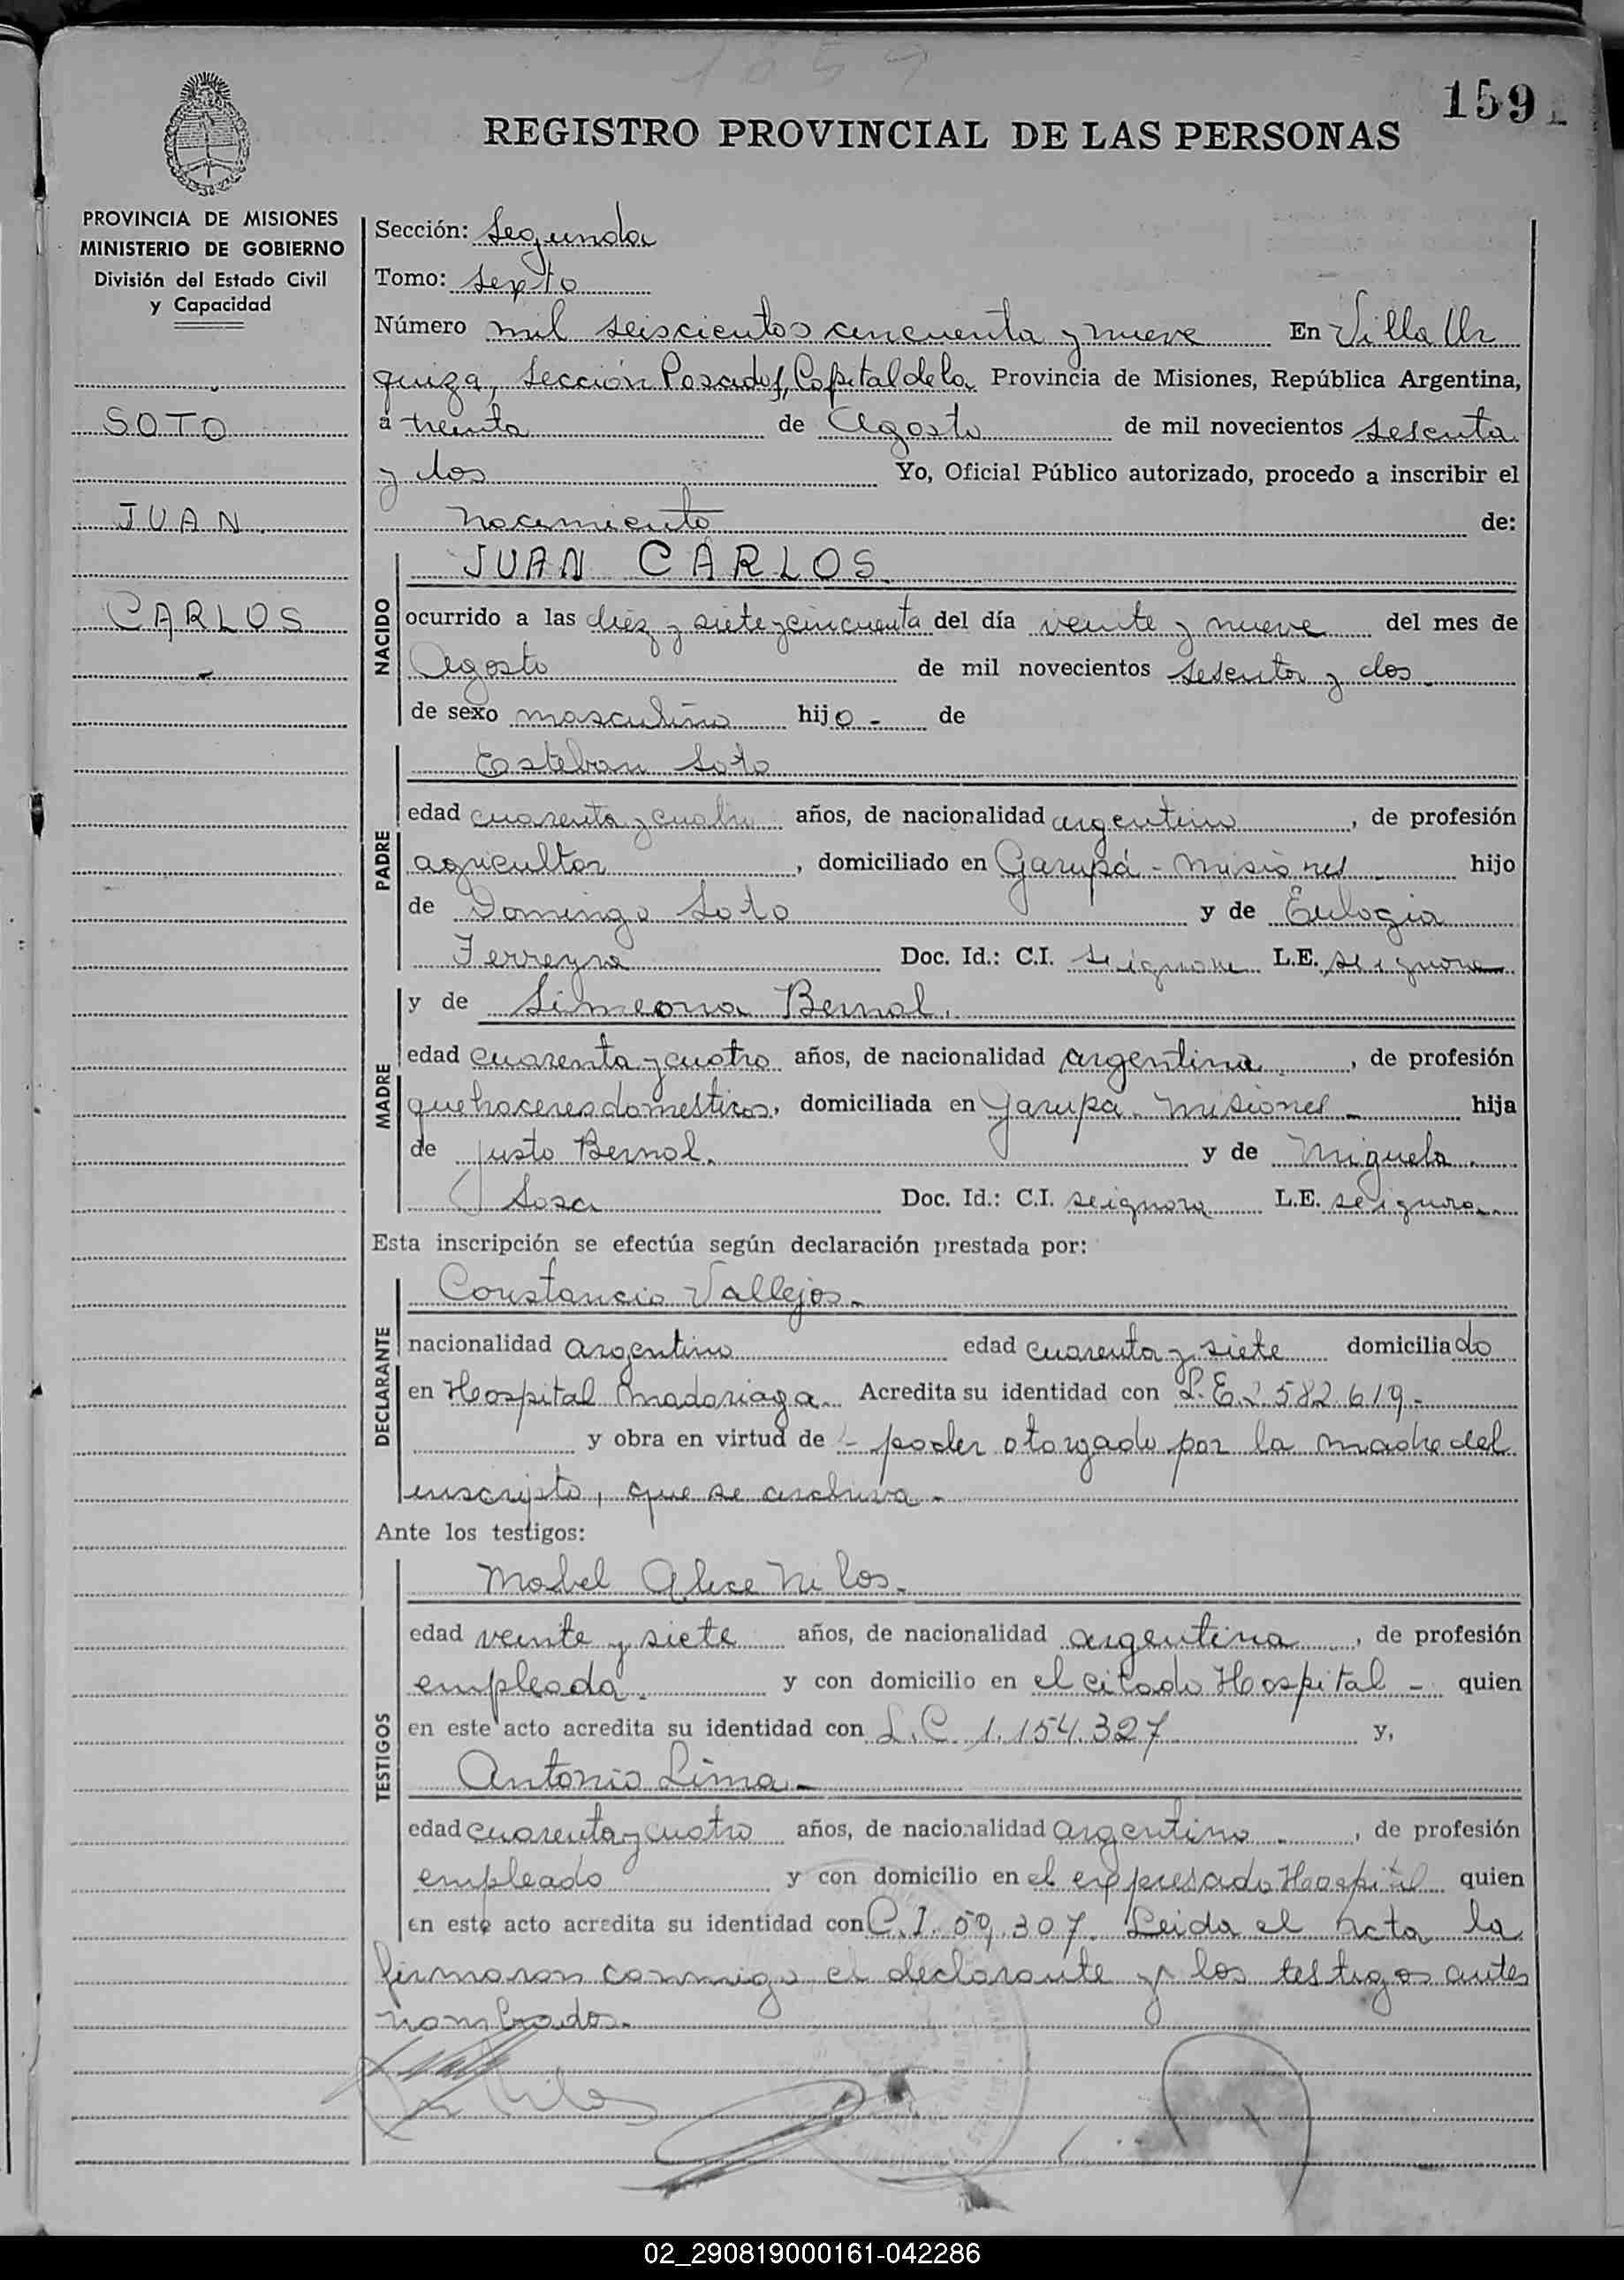 159
REGISTRO PROVINCIAL DE LAS PERSONAS
PROVINCIA DE MISIONES
MINISTERIO DE GOBIERNO
División del Estado Civil
y Capacidad
SOTO
JUAN
CARLOS
Sección: Segunda
Tomo: sexto
Número mil seiscientos cincuenta y nueve En Villa Ur
quiza, Sección Posadas, Capital de la Provincia de Misiones, República Argentina,
a treinta de Agosto de mil novecientos sesenta
y dos Yo, Oficial Público autorizado, procedo a inscribir el
nacimiento de:
NACIDO
JUAN CARLOS
ocurrido a las diez y siete y cincuenta del día veinte y nueve del mes de
Agosto de mil novecientos sesenta y dos
de sexo masculino hijo - de
PADRE
Esteban Soto
edad cuarenta y cuatro años, de nacionalidad argentino, de profesión
agricultor, domiciliado en Garupá - Misiones hijo
de Domingo Soto y de Eulogia
Ferreyra Doc. Id.: C.I. se ignora L.E. se ignora
MADRE
y de Simeona Bernal.
edad cuarenta y cuatro años, de nacionalidad argentina, de profesión
quehaceres domesticos, domiciliada en Garupa - Misiones - hija
de Justo Bernal. y de Miguela
Sosa Doc. Id.: C.I. se ignora L.E. se ignora
Esta inscripción se efectúa según declaración prestada por:
DECLARANTE
Constancio Vallejos -
nacionalidad argentino edad cuarenta y siete domiciliado
en Hospital Madariaga. Acredita su identidad con L.E. 2.582.619 -
y obra en virtud de - poder otorgado por la madre del
inscripto, que se archiva -
Ante los testigos:
TESTIGOS
Mabel Alice Milos -
edad veinte y siete años, de nacionalidad argentina, de profesión
empleada y con domicilio en el citado Hospital - quien
en este acto acredita su identidad con L.C. 1.154.327 y,
Antonio Lima -
edad cuarenta y cuatro años, de nacionalidad argentino, de profesión
empleado y con domicilio en el expresado Hospital quien
en este acto acredita su identidad con C.I. 59.307. Leida el acta la
firmaron conmigo el declarante y los testigos antes
nombrados.
02_290819000161-042286